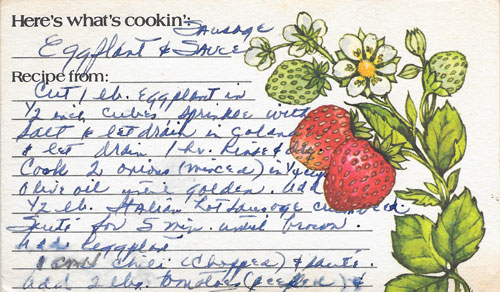 Here's what's cookin': Sausage
Eggplant & Sauce
Recipe from:
Cut 1 lb. eggplant in
1/2 inch cubes sprinkle with
salt & let drain in
& let drain 1 hr. Rinse & dry
Cook 2 onions (minced) in 1/4 cup
Olive oil until golden. Add
1/2 lb. Italian hot sausage
Sauté for 5 min. until brown.
Add eggplant
chili (chopped) & sauté.
add 2 lbs. tomatoes (peeled) &